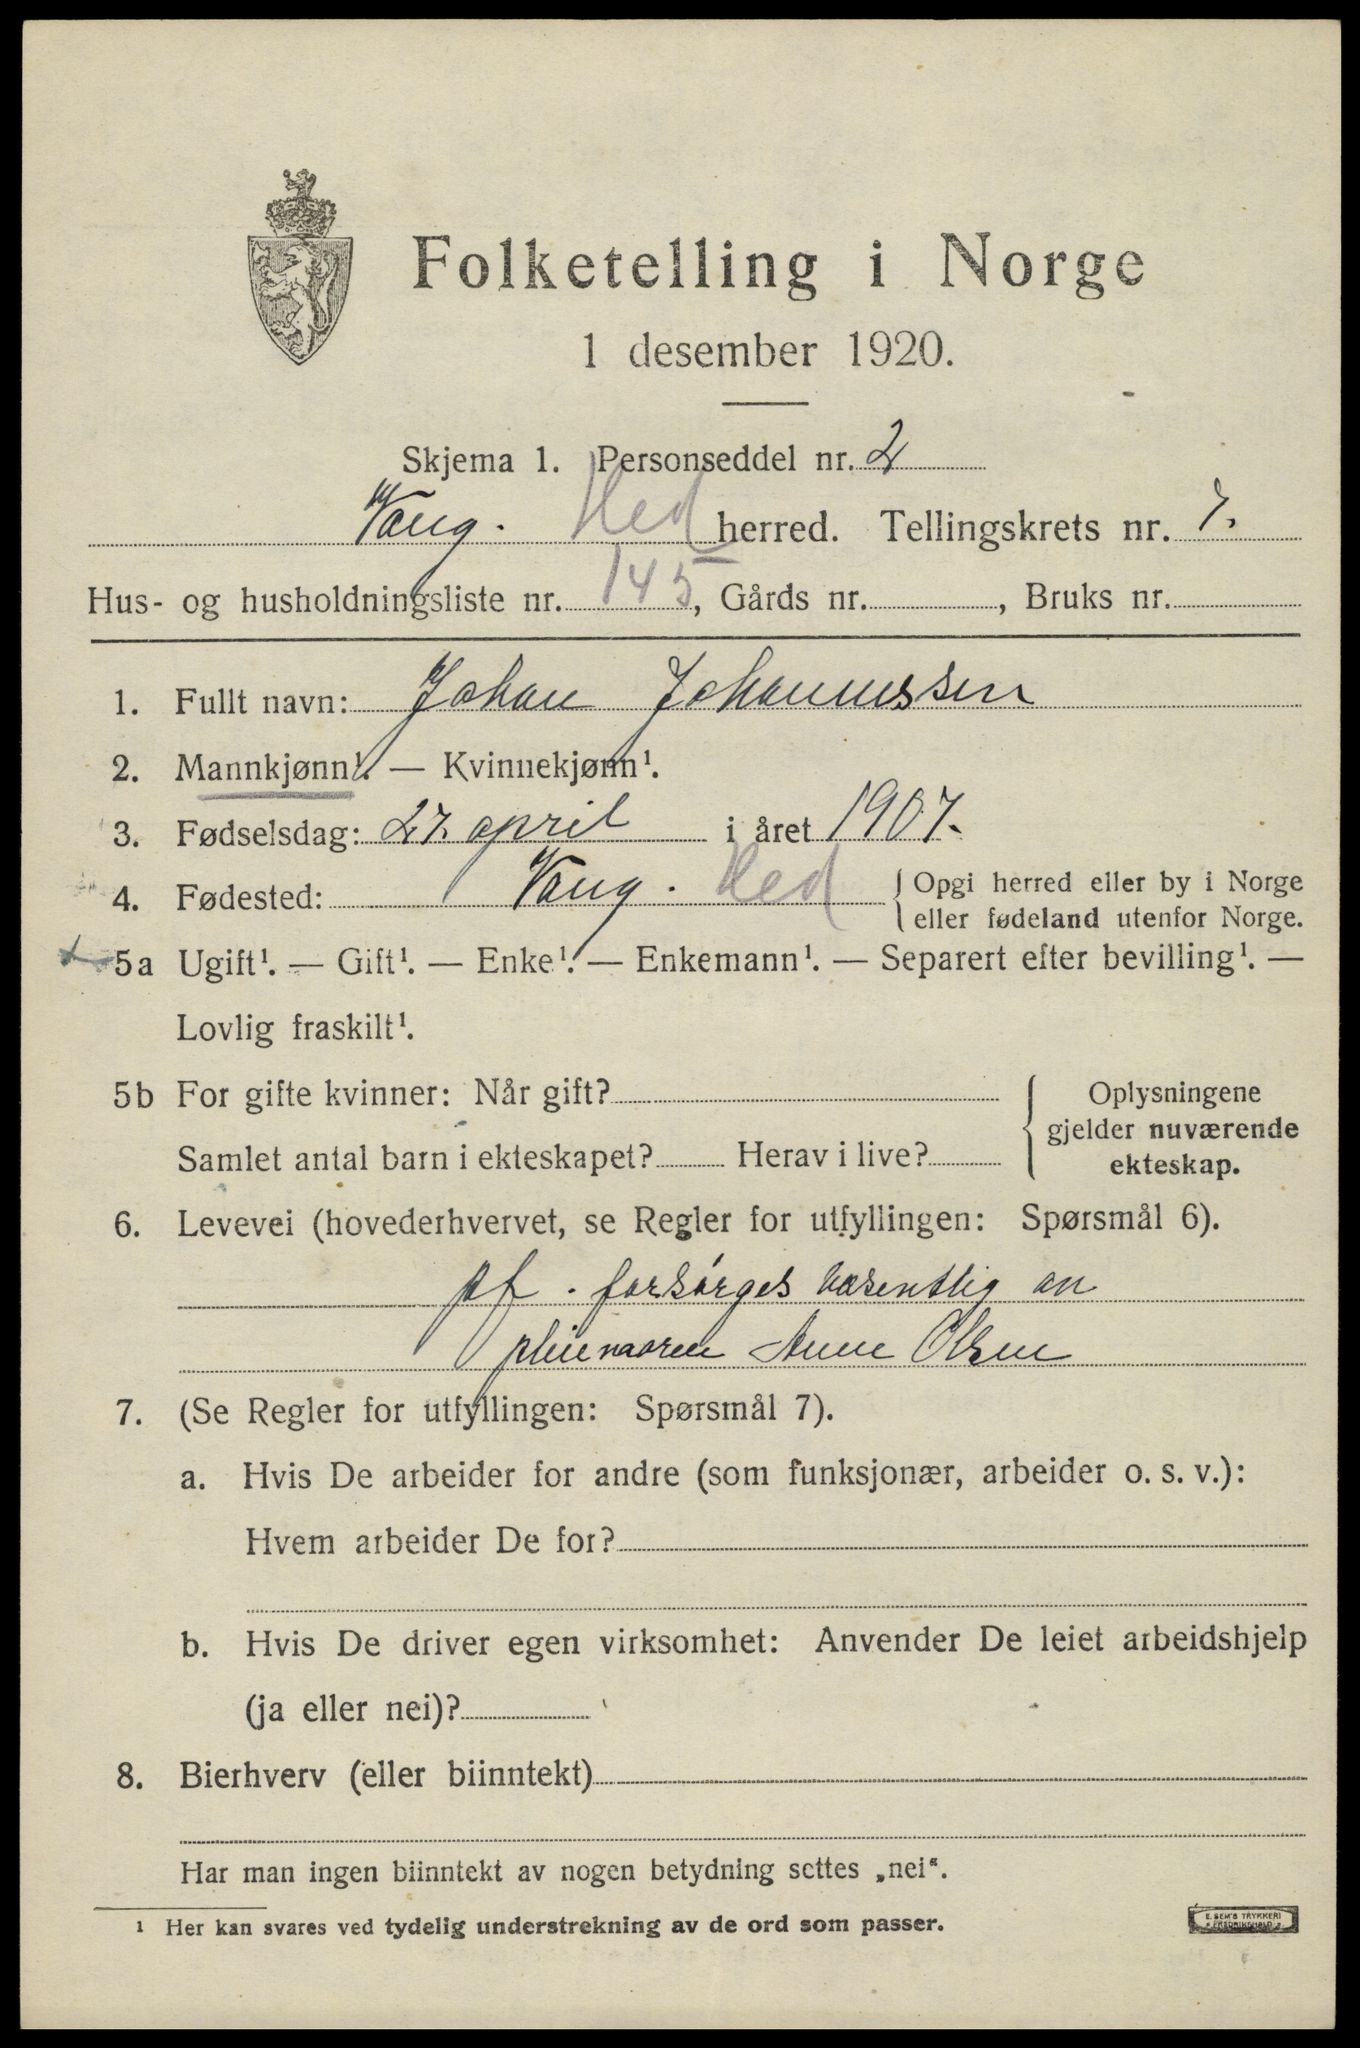 Folketelling i Norge
1 desember 1920.
Skjema 1. Personseddel nr. 2
Vang. Hed herred. Tellingskrets nr. 7.
Hus- og husholdningsliste nr. 145, Gårds nr. , Bruks nr.
1. Fullt navn: Johan Johannessen
2. Mannkjønn¹. — Kvinnekjønn¹.
3. Fødselsdag: 27. april i året 1907.
4. Fødested: Vang. Hed { Opgi herred eller by i Norge
eller fødeland utenfor Norge.
5a Ugift¹. — Gift¹. — Enke¹. — Enkemann¹. — Separert efter bevilling¹. —
Lovlig fraskilt¹.
5b For gifte kvinner: Når gift? { Oplysningene
gjelder nuværende
Samlet antal barn i ekteskapet? Herav i live? ekteskap.
6. Levevei (hovederhvervet, se Regler for utfyllingen: Spørsmål 6).
pf. forsørges væsentlig an
pleiemoren Anne Olsen
7. (Se Regler for utfyllingen: Spørsmål 7).
a. Hvis De arbeider for andre (som funksjonær, arbeider o. s. v.):
Hvem arbeider De for?
b. Hvis De driver egen virksomhet: Anvender De leiet arbeidshjelp
(ja eller nei)?
8. Bierhverv (eller biinntekt)
Har man ingen biinntekt av nogen betydning settes „nei“.
¹ Her kan svares ved tydelig understrekning av de ord som passer.
E. SEM'S TRYKKERI
FREDRIKSHALD